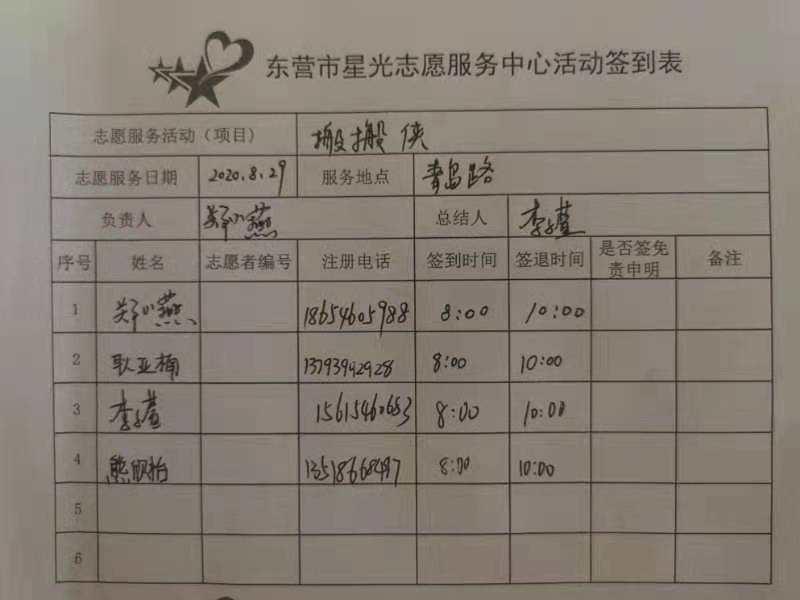 东营市星光志愿服务中心活动签到表
志愿服务活动（项目） 搬搬侠
志愿服务日期 2020.8.29 服务地点 青岛路
负责人 郑小燕 总结人
序号 姓名 志愿者编号 注册电话 签到时间 签退时间 是否签免责申明 备注
1 郑小燕 18654605988 8:00 10:00
2 耿亚楠 13793992928 8:00 10:00
3 15615460653 8:00 10:00
4 熊欣怡 8:00 10:00
5
6